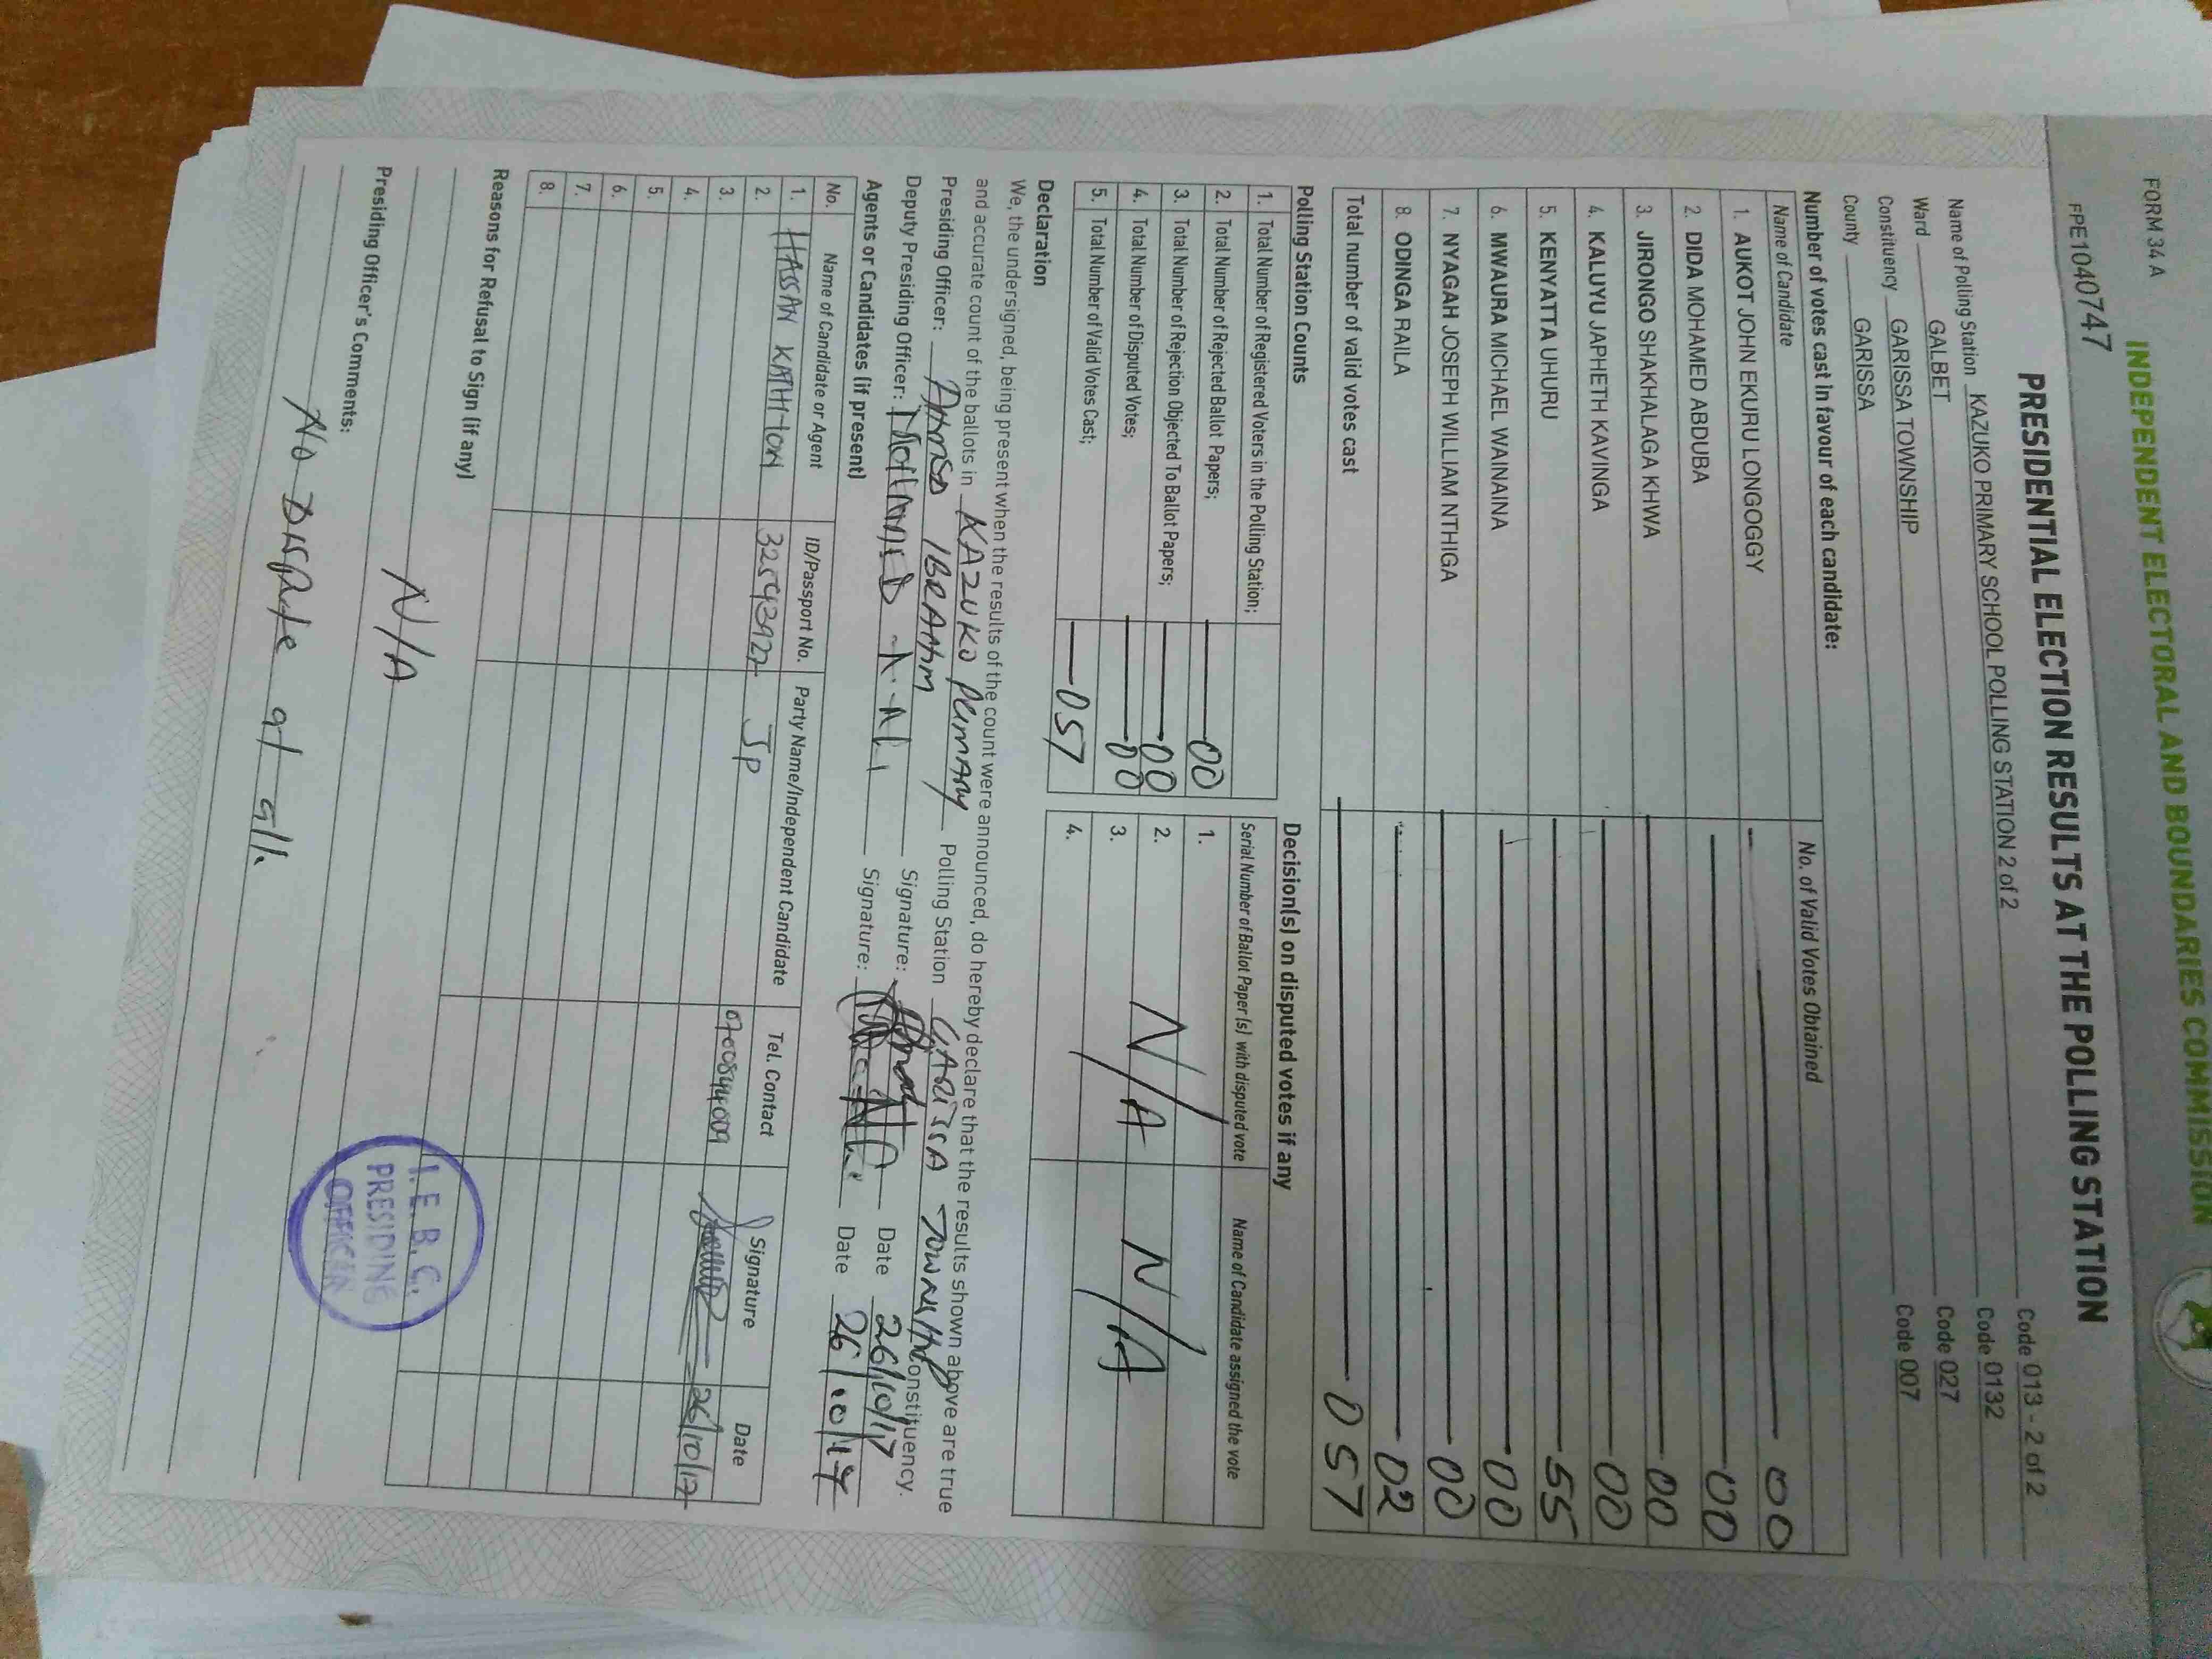 FORM 34 A
INDEPENDENT ELECTORAL AND BOUNDARIES COMMISSION
FPE1040747
PRESIDENTIAL ELECTION RESULTS AT THE POLLING STATION
Name of Polling Station KAZUKO PRIMARY SCHOOL POLLING STATION 2 of 2 Code 013 - 2 of 2
Ward GALBET Code 0132
Constituency GARISSA TOWNSHIP Code 027
County GARISSA Code 007
Number of votes cast in favour of each candidate:
Name of Candidate No. of Valid Votes Obtained
1. AUKOT JOHN EKURU LONGOGGY 00
2. DIDA MOHAMED ABDUBA 00
3. JIRONGO SHAKHALAGA KHWA 00
4. KALUYU JAPHETH KAVINGA 00
5. KENYATTA UHURU 55
6. MWAURA MICHAEL WAINAINA 00
7. NYAGAH JOSEPH WILLIAM NTHIGA 00
8. ODINGA RAILA 02
Total number of valid votes cast 057
Polling Station Counts
1. Total Number of Registered Voters in the Polling Station;
2. Total Number of Rejected Ballot Papers; 00
3. Total Number of Rejection Objected To Ballot Papers; 00
4. Total Number of Disputed Votes; 00
5. Total Number of Valid Votes Cast; 057
Decision(s) on disputed votes if any
Serial Number of Ballot Paper (s) with disputed vote Name of Candidate assigned the vote
1.
2. N/A N/A
3.
4.
Declaration
We, the undersigned, being present when the results of the count were announced, do hereby declare that the results shown above are true
and accurate count of the ballots in KAZUKO PRIMARY Polling Station GARISSA TOWNSHIP Constituency.
Presiding Officer: IBRAHIM Signature: Date 26/10/17
Deputy Presiding Officer: Signature: Date 26/10/17
Agents or Candidates (if present)
No. Name of Candidate or Agent ID/Passport No. Party Name/Independent Candidate Tel. Contact Signature Date
1. HASSAN 32543927 JP 0700844009 26/10/17
2.
3.
4.
5.
6.
7.
8.
Reasons for Refusal to Sign (if any)
N/A
Presiding Officer's Comments:
No Dispute at all.
I.E.B.C.
PRESIDING
OFFICER